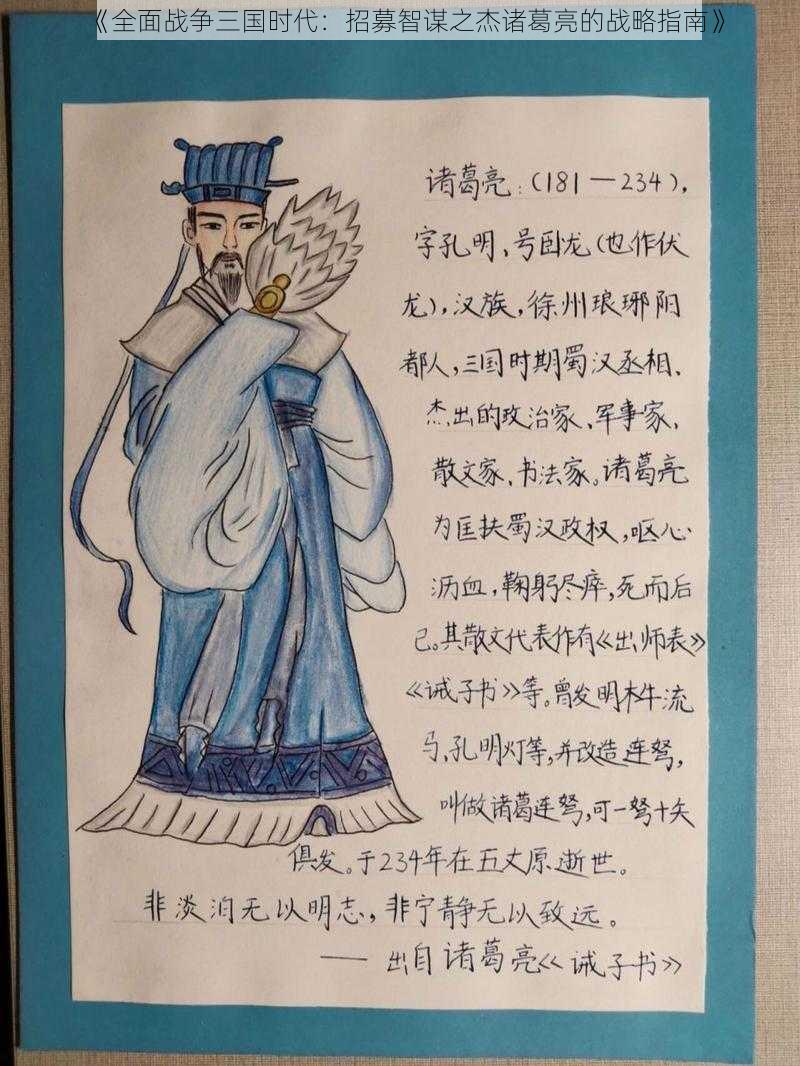 《全面战争三国时代：招募智谋之杰诸葛亮的战略指南》
诸葛亮：（181—234），
字孔明、号卧龙（也作伏
龙），汉族，徐州琅琊阳
都人，三国时期蜀汉丞相、
杰出的政治家、军事家、
散文家、书法家。诸葛亮
为匡扶蜀汉政权，呕心
沥血，鞠躬尽瘁，死而后
已。其散文代表作有《出师表》
《诫子书》等。曾发明木牛流
马、孔明灯等，并改造连弩，
叫做诸葛连弩，可一弩十矢
俱发。于234年在五丈原逝世。
非淡泊无以明志，非宁静无以致远。
——出自诸葛亮《诫子书》